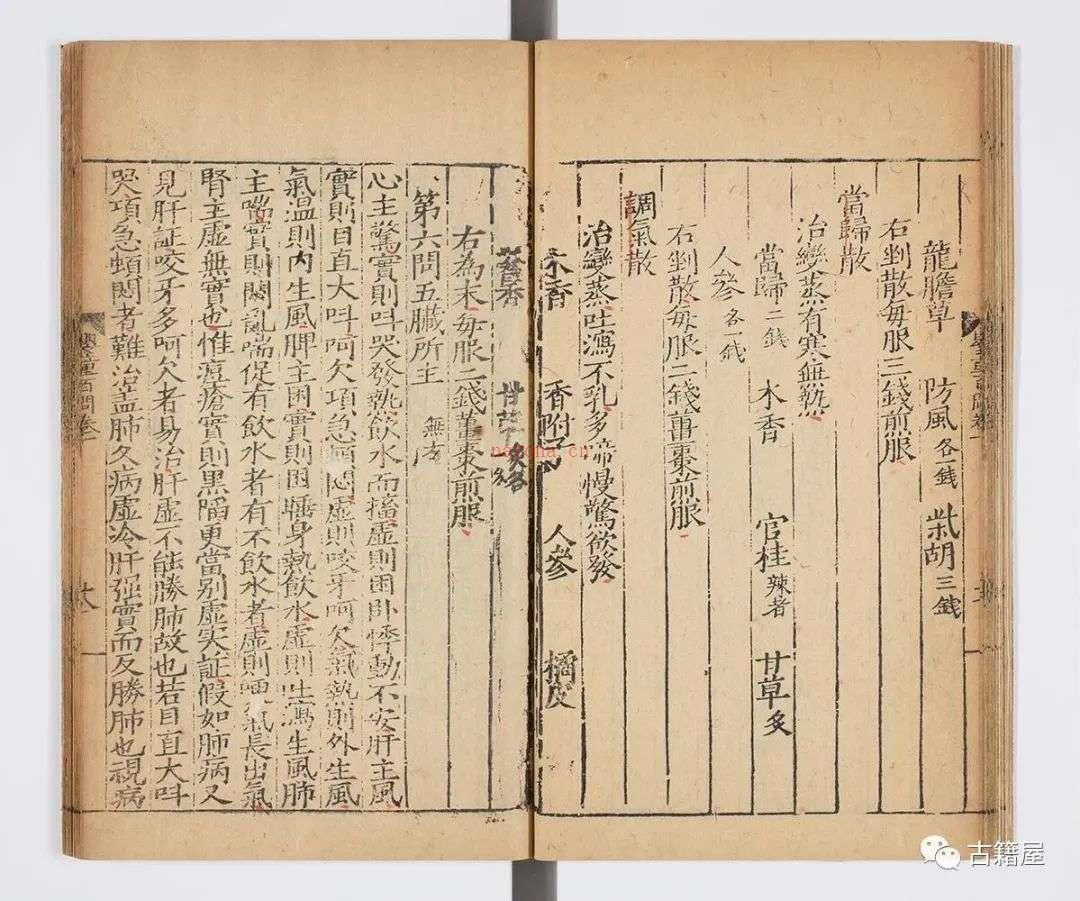 龍膽草 防風各一錢 柴胡三錢
右剉散每服三錢煎服
當歸散
治變蒸有寒無熱
當歸二錢 木香 官桂辣者 甘草炙
人參各一錢
右剉散每服二錢薑棗煎服
調氣散
治變蒸吐瀉不乳多啼慢驚欲發
木香 香附子 人參 橘皮
藿香 甘草炙各
右為末每服二錢薑棗煎服
第六問五臟所主 無方
心主驚實則呌哭發熱飲水而搐虛則困卧悸動不安肝主風
實則目直大呌呵欠項急頓悶虛則咬牙呵欠氣熱則外生風
氣溫則內生風脾主困實則困睡身熱飲水虛則吐瀉生風肺
主喘實則悶亂喘促有飲水者有不飲水者虛則哽氣長出氣
腎主虛無實也惟痘瘡實則黑陷更當別虛实証假如肺病又
見肝証咬牙多呵欠者易治肝虛不能勝肺故也若目直大呌
哭項急頓悶者難治盖肺久病虛冷肝强實而反勝肺也視病
嬰童百問卷一
六
nayona.cn
古籍屋